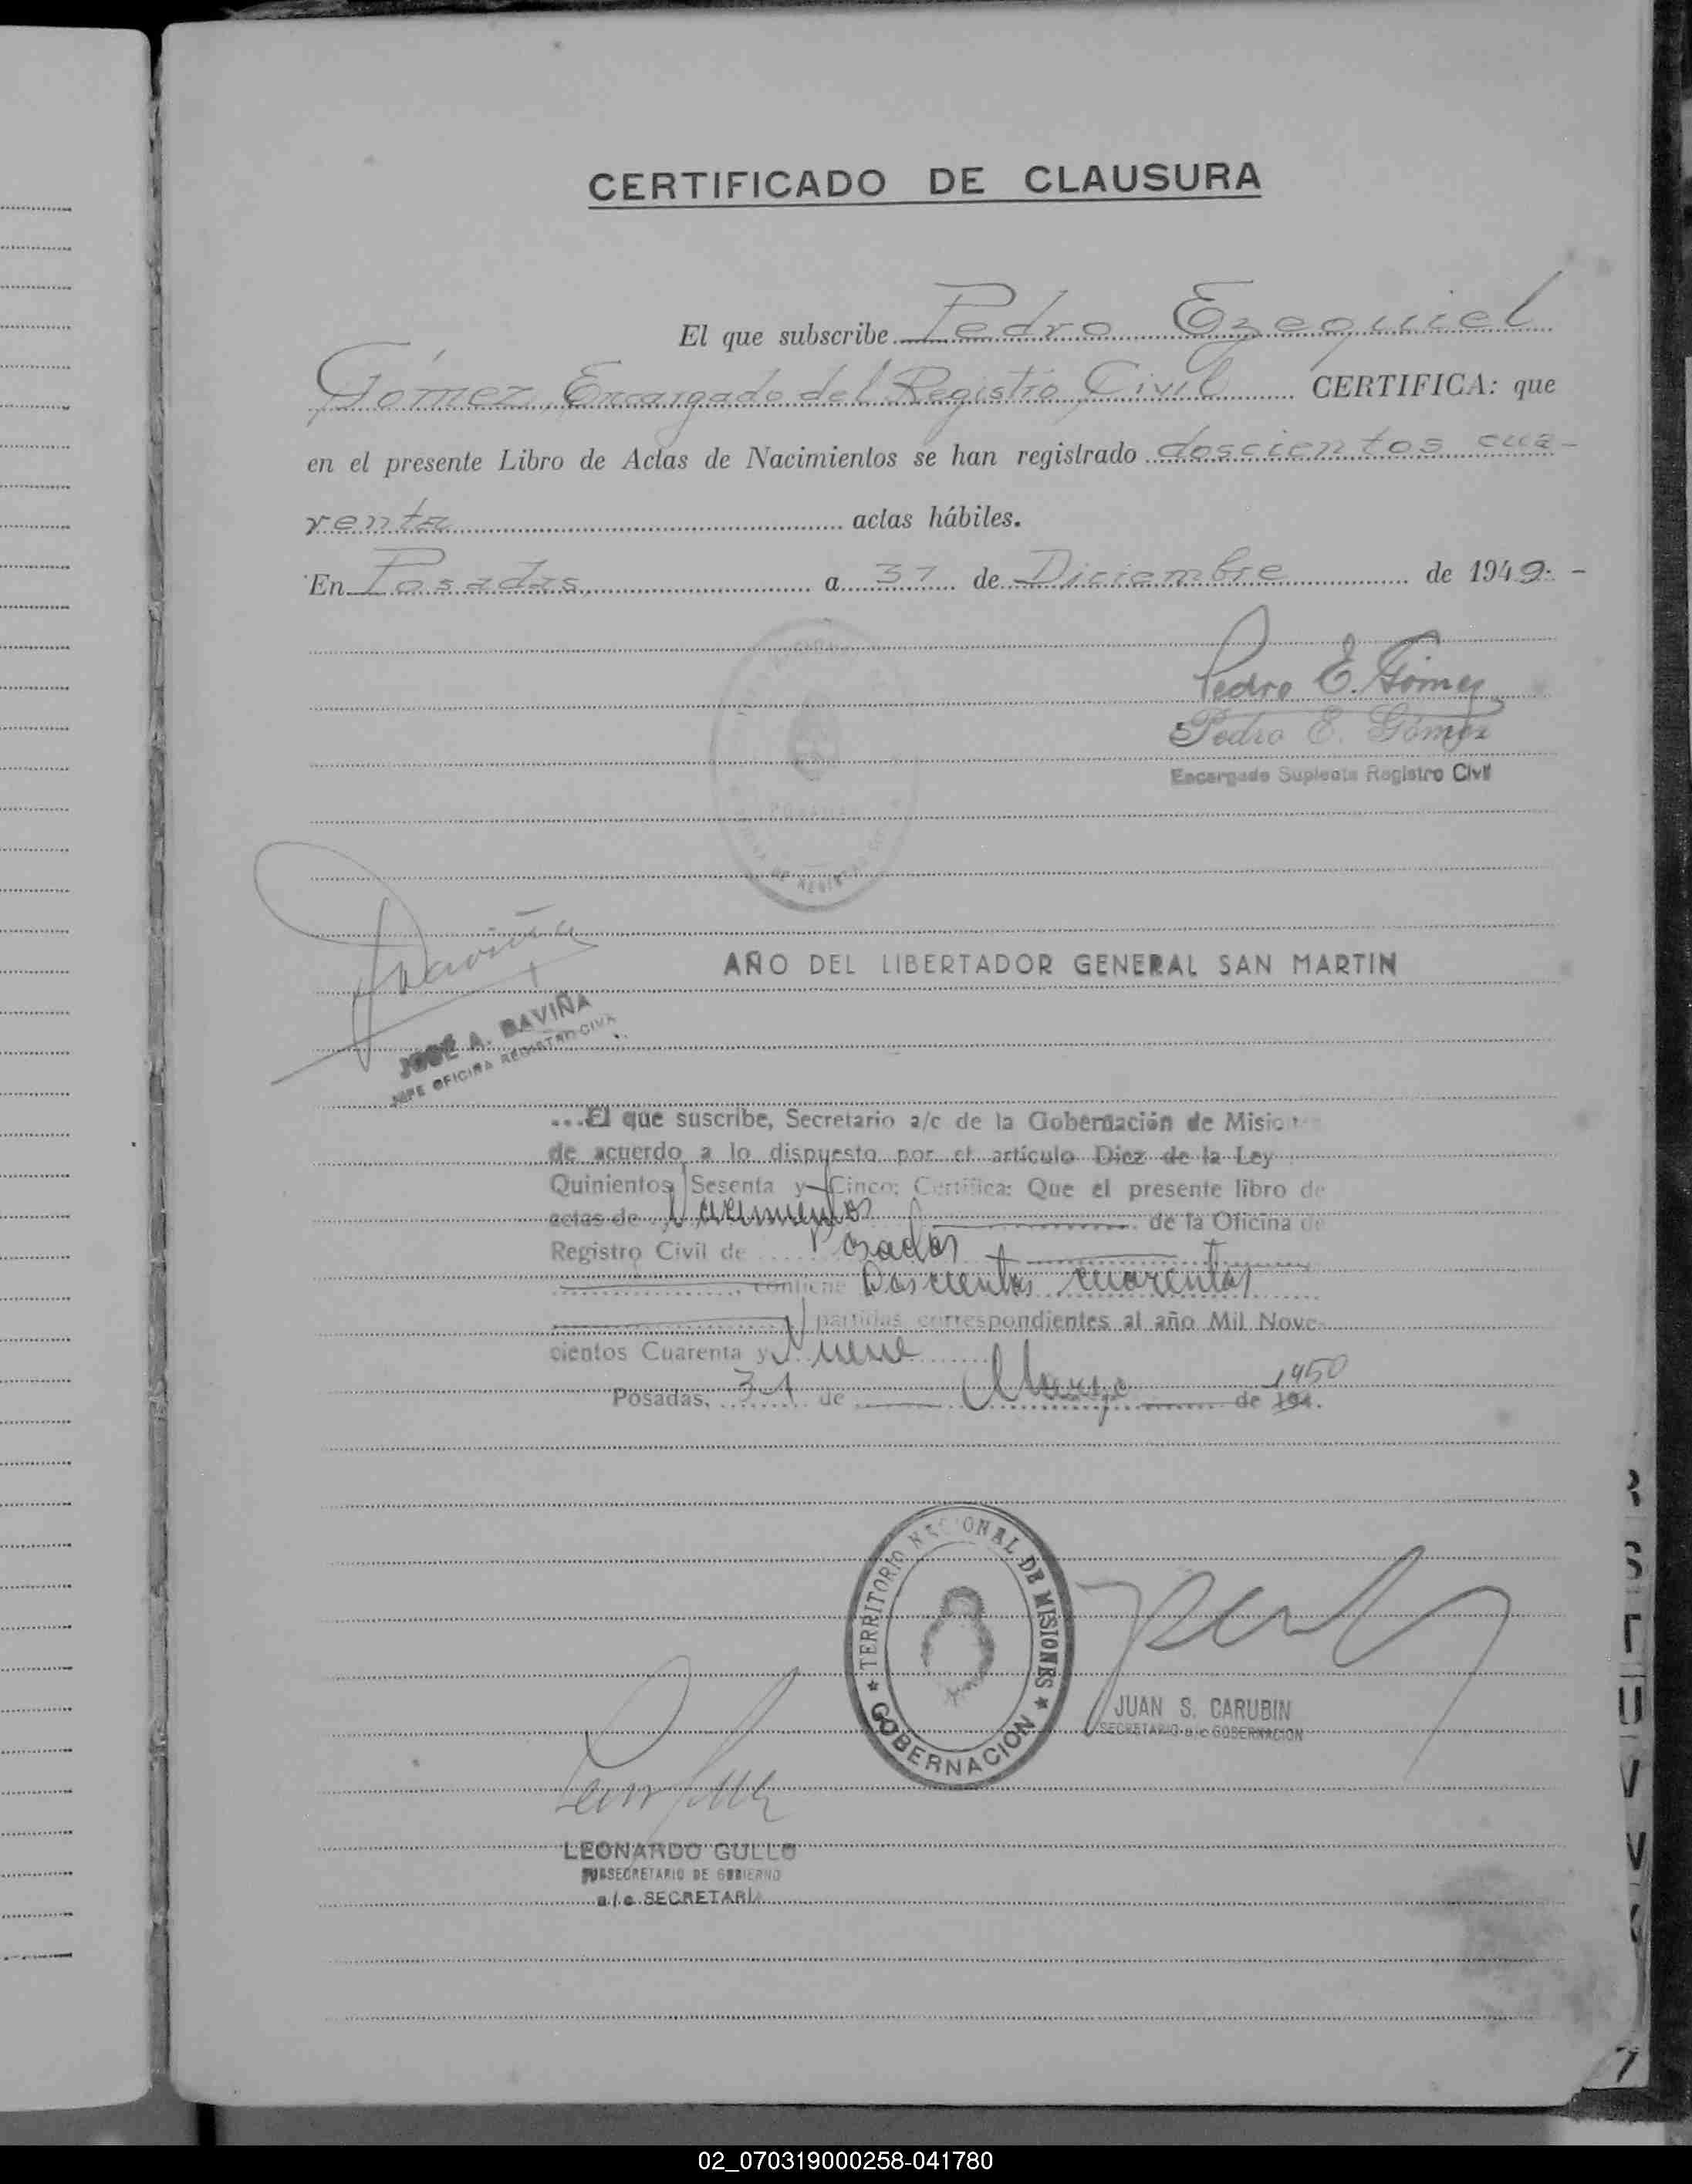 CERTIFICADO DE CLAUSURA
El que subscribe Pedro Ezequiel
Gómez, Encargado del Registro Civil CERTIFICA: que
en el presente Libro de Actas de Nacimientos se han registrado doscientos cua-
renta actas hábiles.
En Posadas, a 31 de Diciembre de 1949.-
Pedro E. Gómez
Pedro E. Gómez
Encargado Suplente Registro Civil
Daviña
AÑO DEL LIBERTADOR GENERAL SAN MARTIN
JOSÉ A. DAVIÑA
JEFE OFICINA REGISTRO CIVIL
...El que suscribe, Secretario a/c de la Gobernación de Misiones
de acuerdo a lo dispuesto por el artículo Diez de la Ley
Quinientos Sesenta y Cinco; Certifica: Que el presente libro de
actas de Nacimientos de la Oficina de
Registro Civil de Posadas
contiene Doscientas cuarentas
partidas correspondientes al año Mil Nove-
cientos Cuarenta y Nueve
Posadas, 31 de Marzo de 194. 1950
TERRITORIO NACIONAL DE MISIONES
GOBERNACION
JUAN S. CARUBIN
SECRETARIO a/c GOBERNACION
LEONARDO GULLO
SUBSECRETARIO DE GOBIERNO
a/c SECRETARÍA
02_070319000258-041780